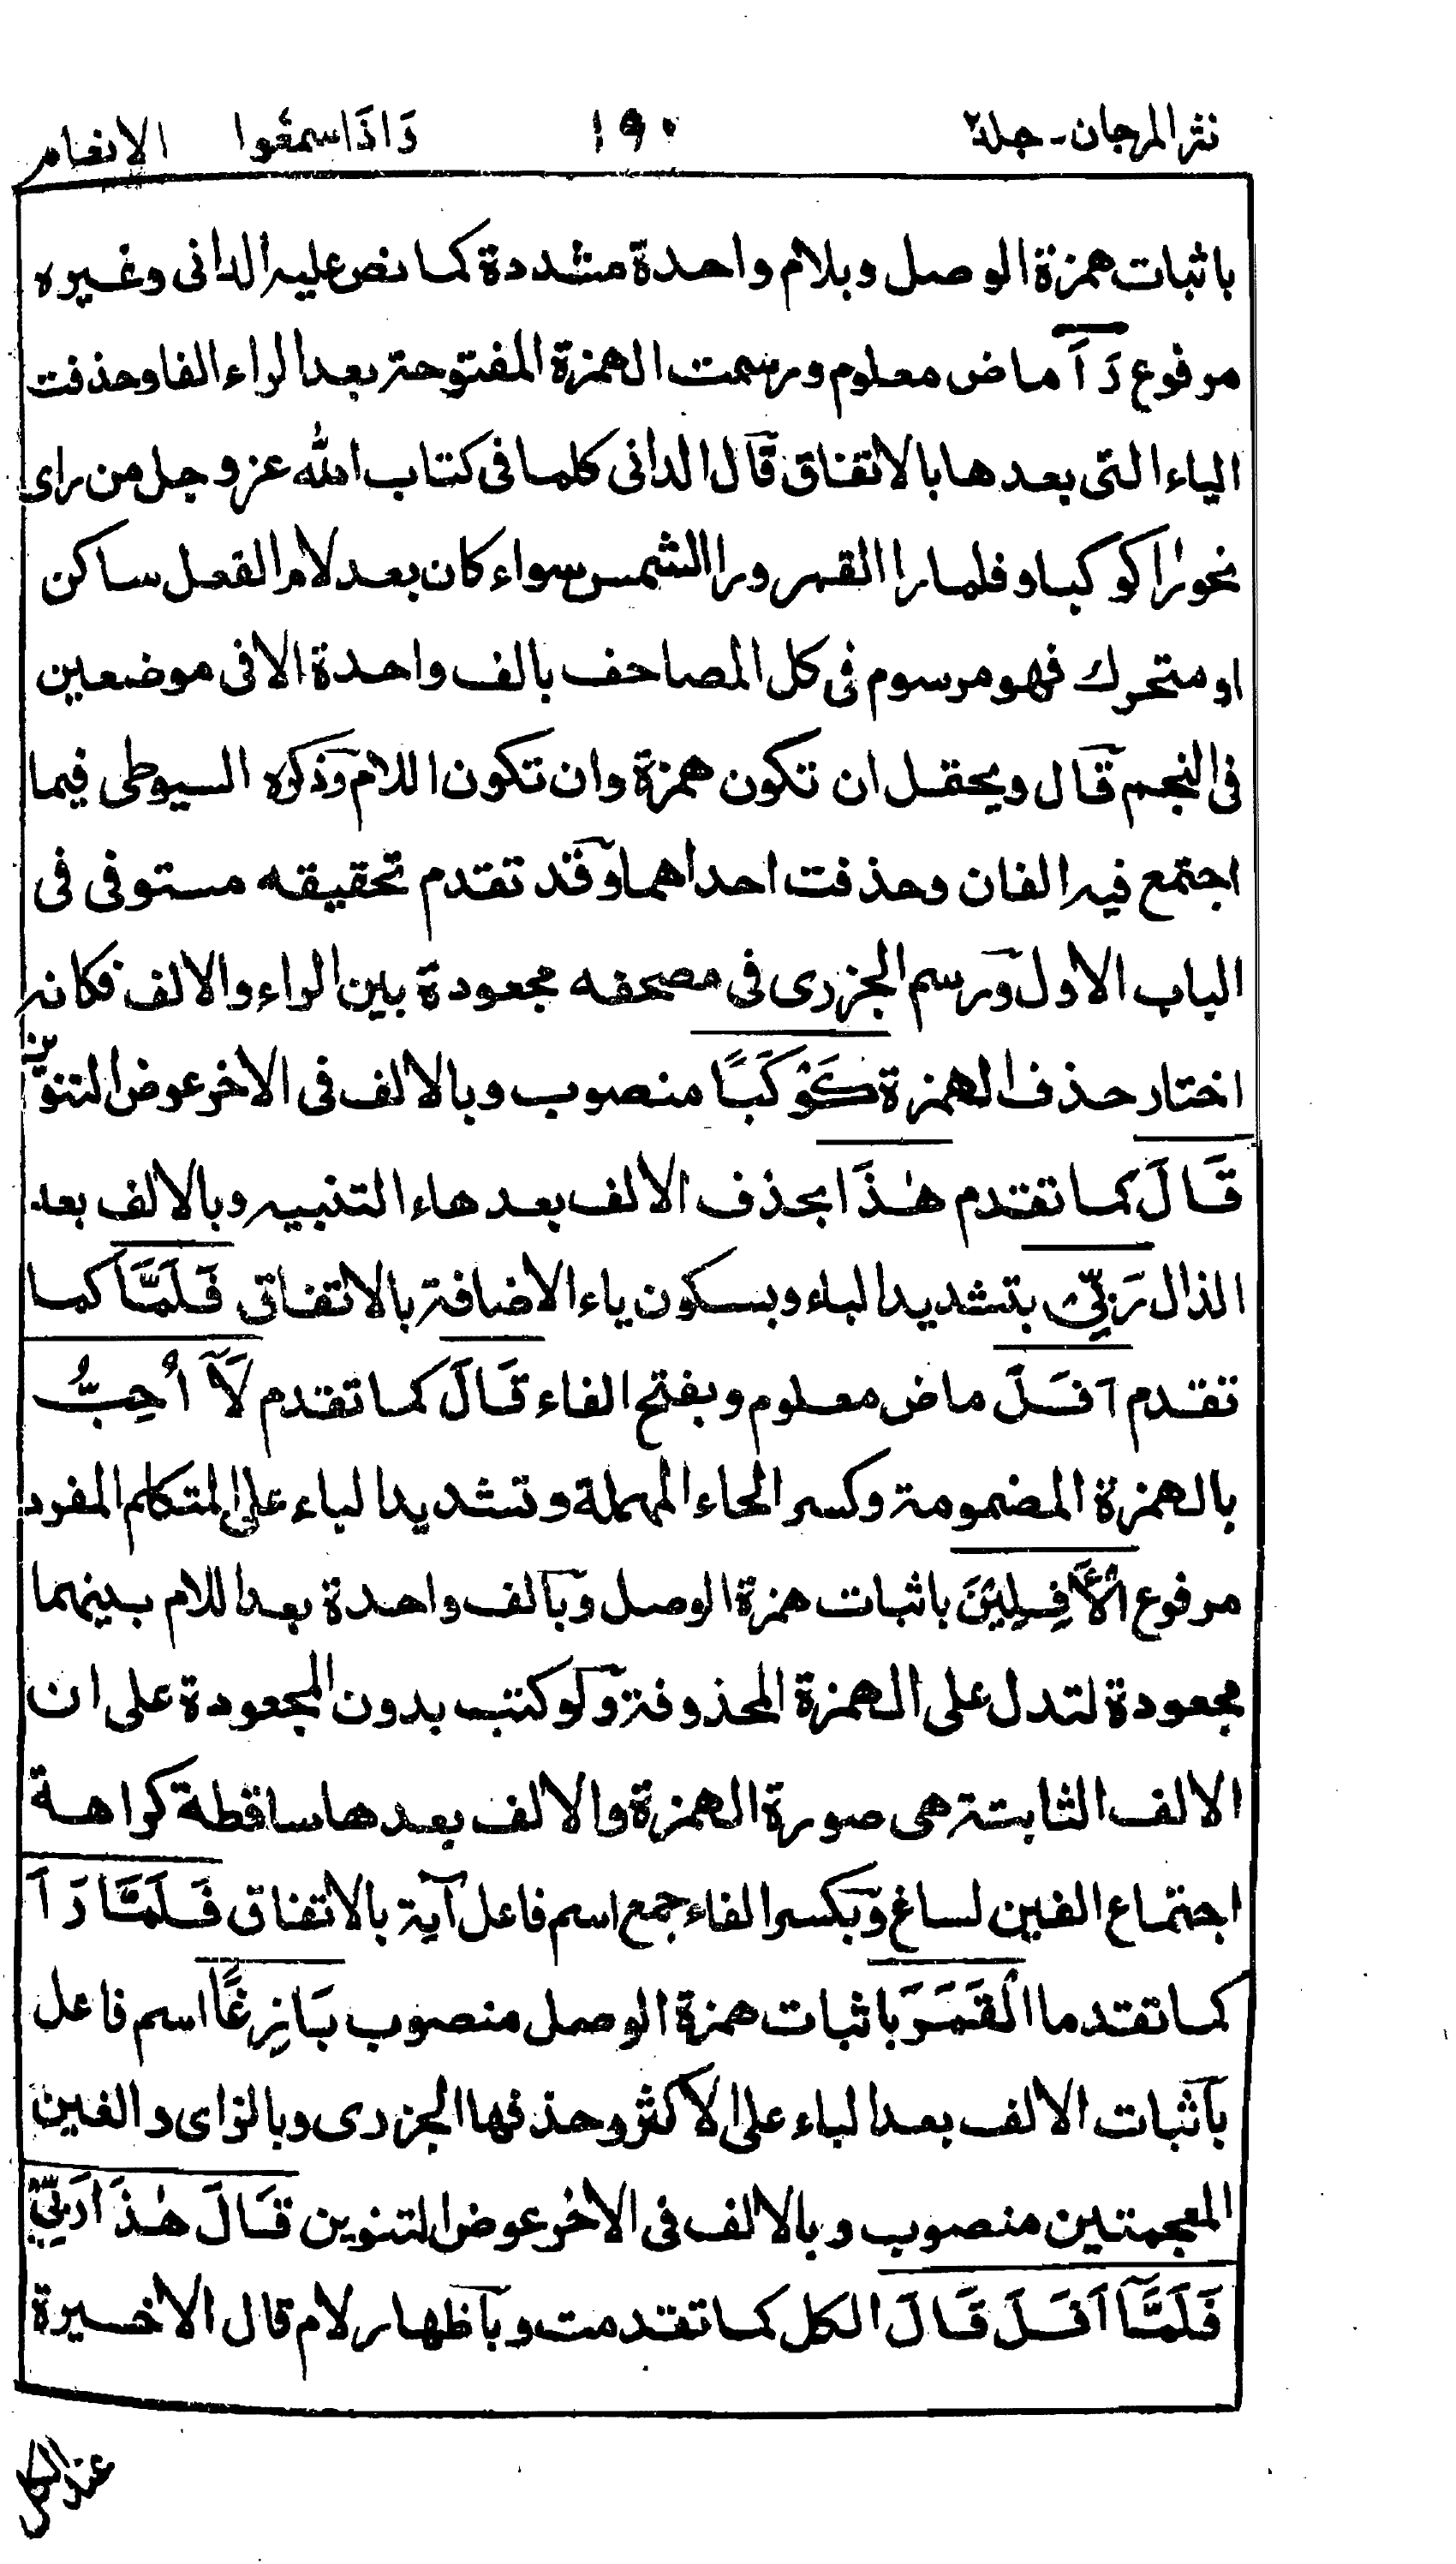 نثر المرجان - جلد ٢ ١٩٠ وَاِذَا سمعوا الانعام
باثبات همزة الوصل وبلام واحدة مشددة كما نص عليه الدانى وغيره
مرفوع رَآَ ماض معلوم ورسمت الهمزة المفتوحة بعد الراء الفا وحذفت
الياء التى بعدها بالاتفاق قال الدانى كلما فى كتاب الله عز وجل من راى
نحو را كوكبا وفلما را القمر ورا الشمس سواء كان بعد لام الفعل ساكن
او متحرك فهو مرسوم فى كل المصاحف بالف واحدة الا فى موضعين
فى النجم قال ويحتمل ان تكون همزة وان تكون اللام وذكره السيوطى فيما
اجتمع فيه الفان وحذفت احداهما وقد تقدم تحقيقه مستوفى فى
الباب الاول ورسم الجزرى فى مصحفه مجعودة بين الراء والالف فكانه
اختار حذف الهمزة كَوْكَبًا منصوب وبالالف فى الاخر عوض التنوين
قَالَ كما تقدم هٰذَا بحذف الالف بعد هاء التنبيه وبالالف بعد
الذال رَبِّىْ بتشديد الباء وبسكون ياء الاضافة بالاتفاق فَلَمَّآ كما
تقدم اَفَلَ ماض معلوم وبفتح الفاء قَالَ كما تقدم لَآ اُحِبُّ
بالهمزة المضمومة وكسر الحاء المهملة وتشديد الباء على المتكلم المفرد
مرفوع الْاٰفِلِيْنَ باثبات همزة الوصل وبالف واحدة بعد اللام بينهما
مجعودة لتدل على الهمزة المحذوفة ولو كتب بدون المجعودة على ان
الالف الثابتة هى صورة الهمزة والالف بعدها ساقطة كراهة
اجتماع الفين لساغ وبكسر الفاء جمع اسم فاعل آية بالاتفاق فَلَمَّا رَاَ
كما تقدما الْقَمَرَ باثبات همزة الوصل منصوب بَازِغًا اسم فاعل
باثبات الالف بعد الباء على الاكثر وحذفها الجزرى وبالزاى والغين
المعجمتين منصوب وبالالف فى الاخر عوض التنوين قَالَ هٰذَا رَبِّىْ
فَلَمَّآ اَفَلَ قَالَ الكل كما تقدمت وباظهار لام قال الاخيرة
عند الكل